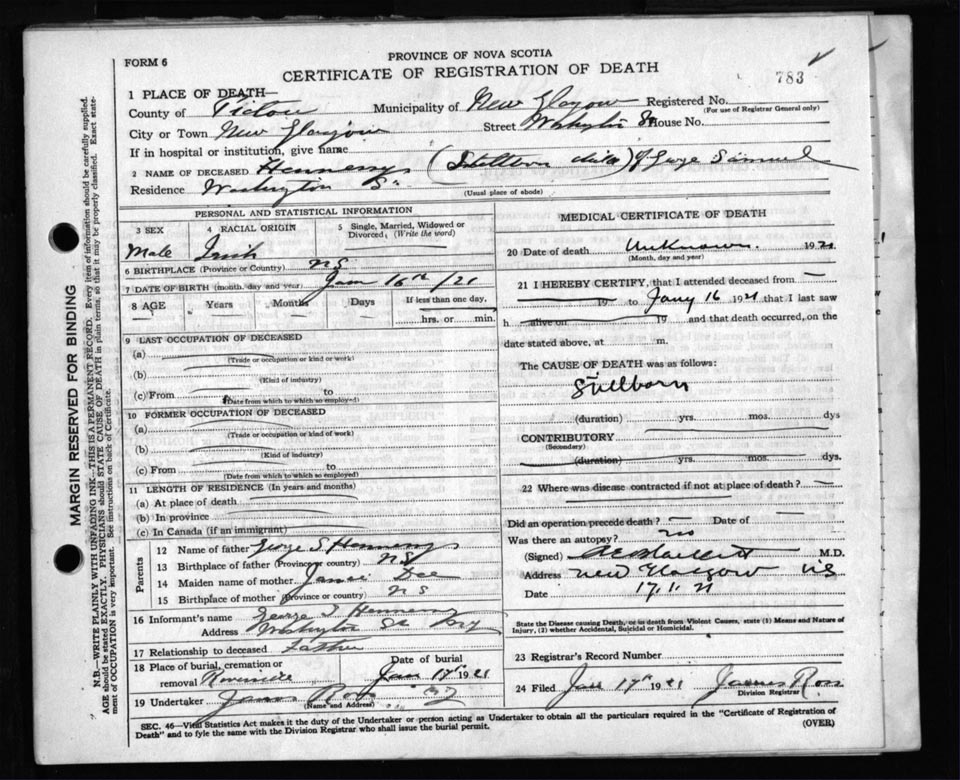 FORM 6
PROVINCE OF NOVA SCOTIA
CERTIFICATE OF REGISTRATION OF DEATH
783
1 PLACE OF DEATH—
County of Pictou Municipality of New Glasgow Registered No.
(For use of Registrar General only)
City or Town New Glasgow Street Washington St House No.
If in hospital or institution, give name
2 NAME OF DECEASED Hennessy (Stillborn child) of George Samuel
Residence Washington St
(Usual place of abode)
PERSONAL AND STATISTICAL INFORMATION
3 SEX 4 RACIAL ORIGIN 5 Single, Married, Widowed or Divorced, (Write the word)
Male Irish
6 BIRTHPLACE (Province or Country) NS
7 DATE OF BIRTH (month, day and year) Jan 16th /21
8 AGE Years Months Days If less than one day,
hrs. or min.
9 LAST OCCUPATION OF DECEASED
(a)
(Trade or occupation or kind of work)
(b)
(Kind of industry)
(c) From to
(Date from which to which so employed)
10 FORMER OCCUPATION OF DECEASED
(a)
(Trade or occupation or kind of work)
(b)
(Kind of industry)
(c) From to
(Date from which to which so employed)
11 LENGTH OF RESIDENCE (In years and months)
(a) At place of death
(b) In province
(c) In Canada (if an immigrant)
Parents
12 Name of father George S Hennessy
13 Birthplace of father (Province or country) NS
14 Maiden name of mother
15 Birthplace of mother (Province or country) NS
16 Informant's name George S Hennessy
Address Washington St
17 Relationship to deceased Father
18 Place of burial, cremation or removal Riverside Date of burial Jan 17th 1921
19 Undertaker James Ross
(Name and Address)
MEDICAL CERTIFICATE OF DEATH
20 Date of death Unknown 1921
(Month, day and year)
21 I HEREBY CERTIFY, that I attended deceased from —
19 to Jany 16 1921 that I last saw
h alive on 19 and that death occurred, on the
date stated above, at m.
The CAUSE OF DEATH was as follows:
Stillborn
(duration) yrs. mos. dys
CONTRIBUTORY
(Secondary)
(duration) yrs. mos. dys.
22 Where was disease contracted if not at place of death? —
Did an operation precede death? — Date of —
Was there an autopsy? no
(Signed) M.D.
Address New Glasgow NS
Date 17.1.21
State the Disease causing Death, or in death from Violent Causes, state (1) Means and Nature of Injury, (2) whether Accidental, Suicidal or Homicidal.
23 Registrar's Record Number
24 Filed Jan 17th 1921 James Ross
Division Registrar
SEC. 46—Vital Statistics Act makes it the duty of the Undertaker or person acting as Undertaker to obtain all the particulars required in the "Certificate of Registration of
Death" and to fyle the same with the Division Registrar who shall issue the burial permit. (OVER)
MARGIN RESERVED FOR BINDING
N.B.—WRITE PLAINLY WITH UNFADING INK—THIS IS A PERMANENT RECORD. Every item of information should be carefully supplied.
AGE should be stated EXACTLY. PHYSICIANS should STATE CAUSE OF DEATH in plain terms, so that it may be properly classified. Exact statement of OCCUPATION is very important. See instructions on back of Certificate.